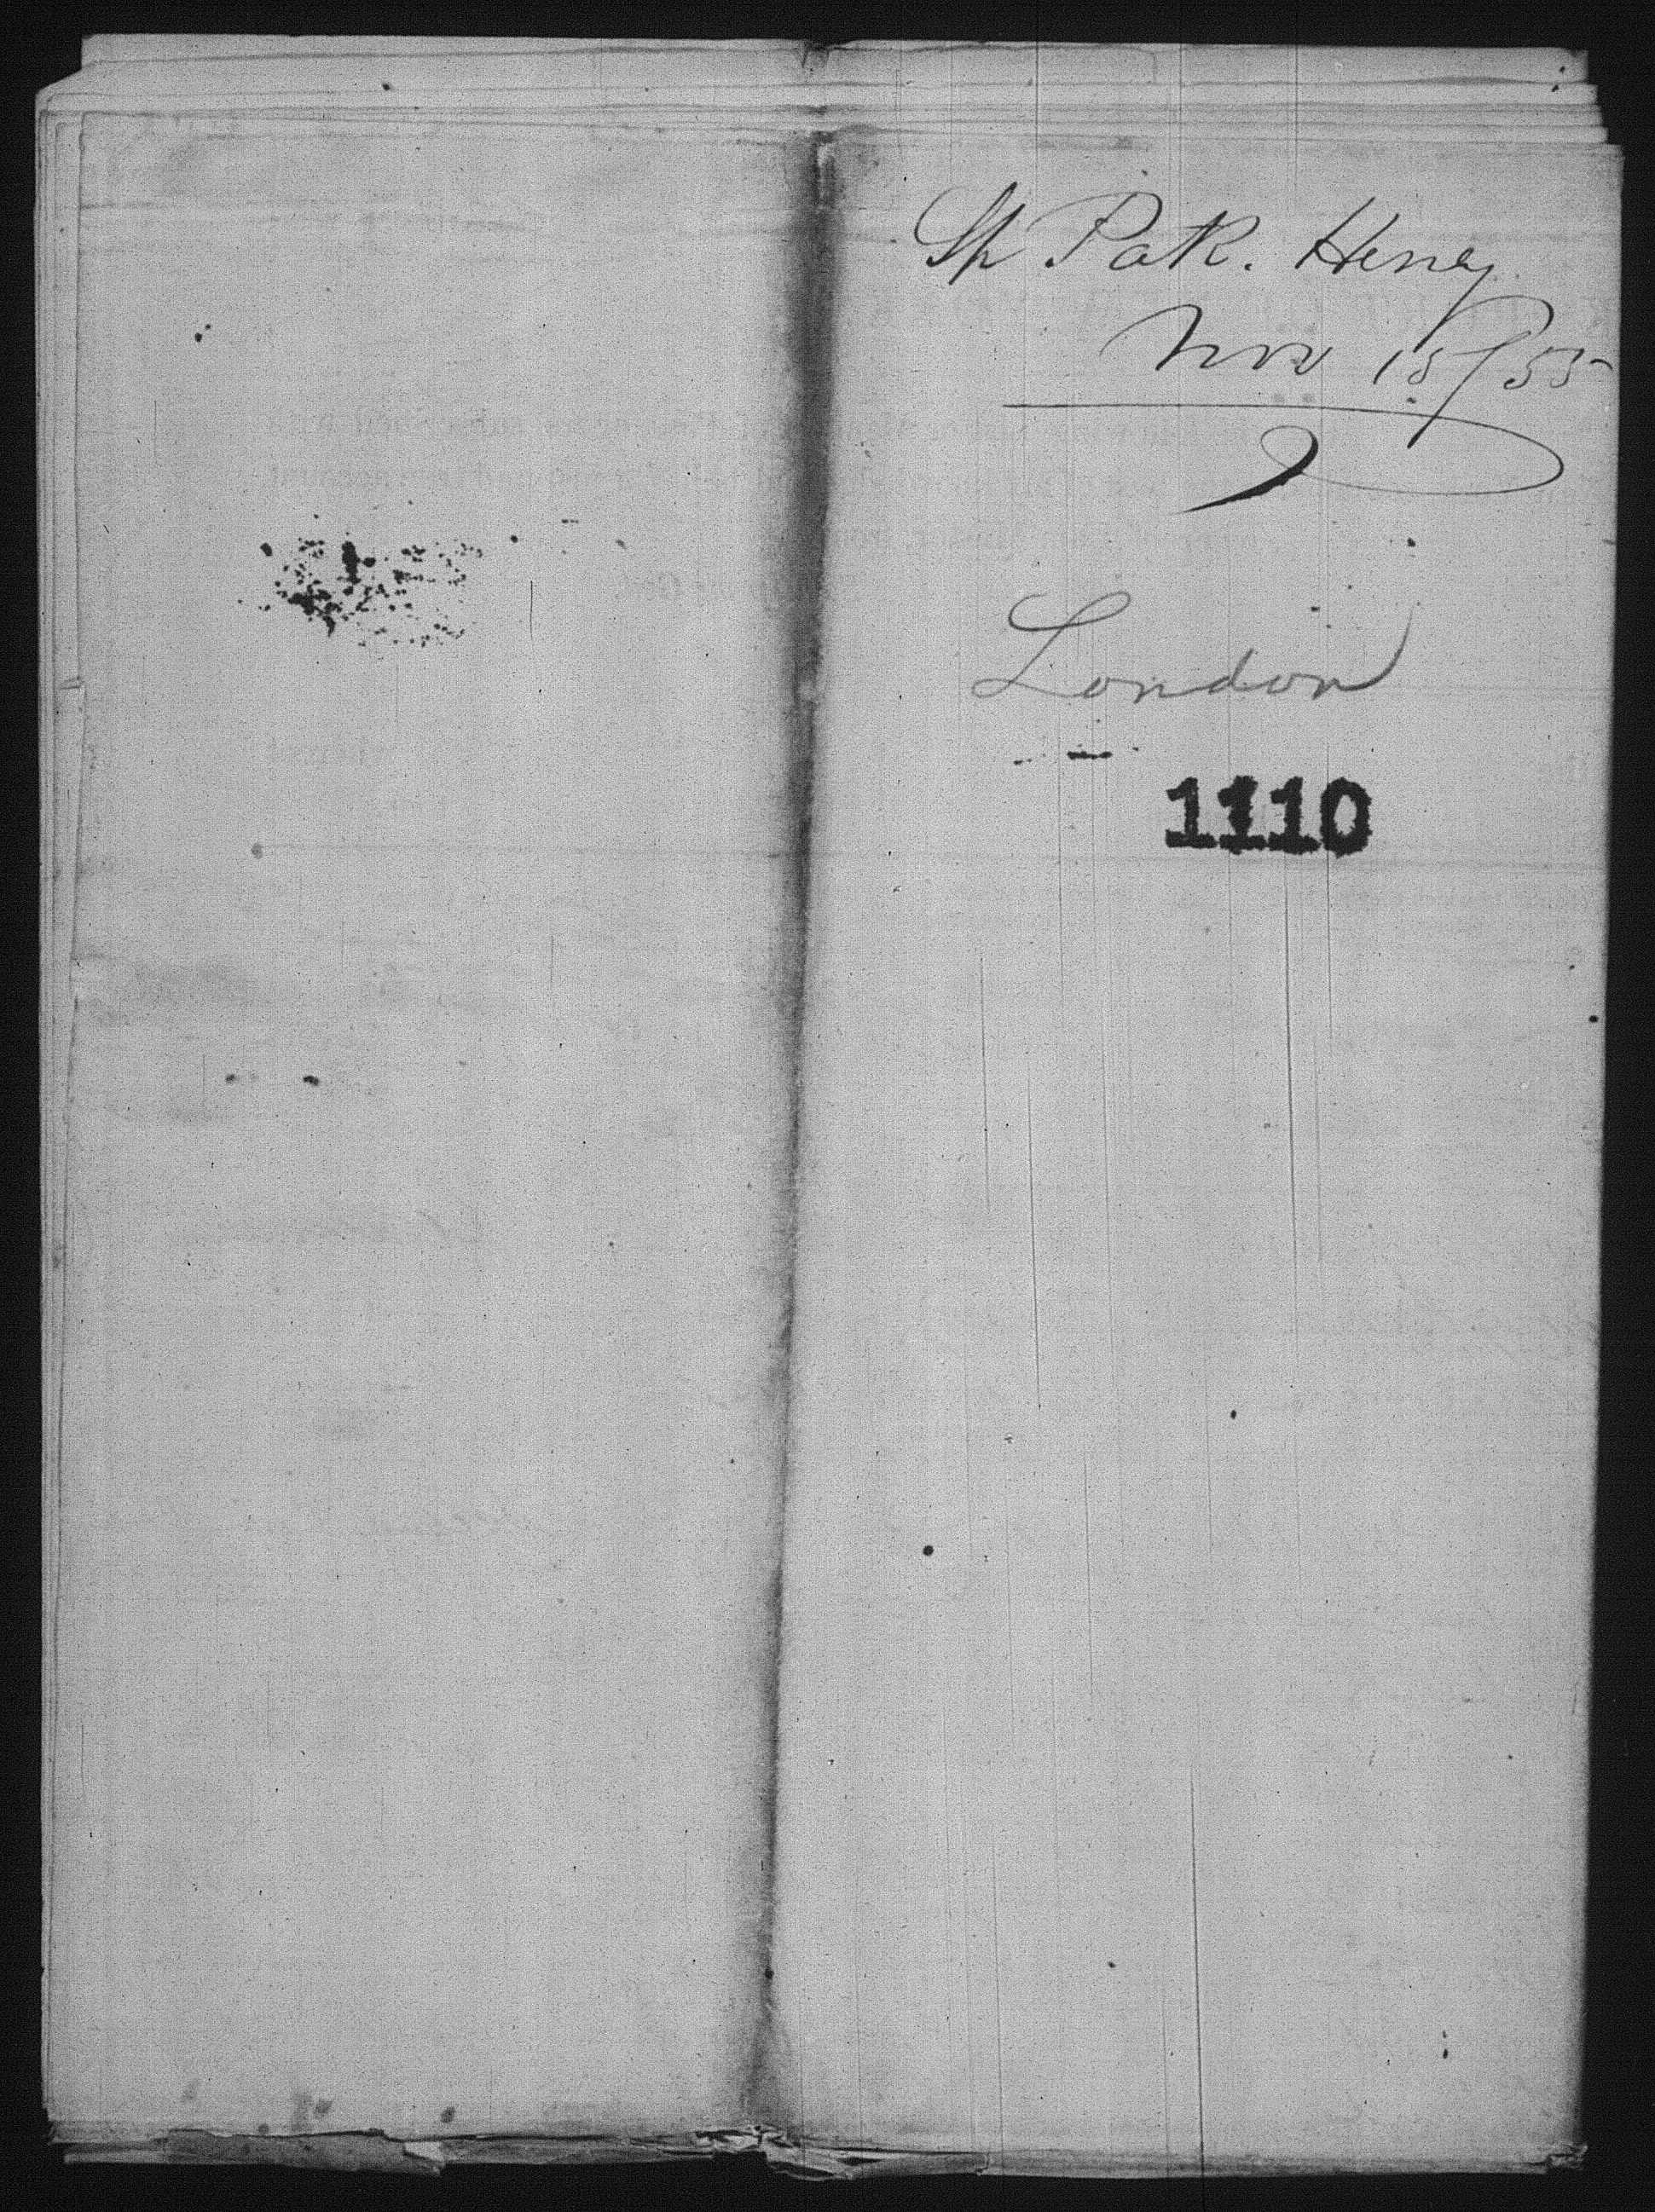 Sh Patk. Henry
Nov 15/55
London
1110